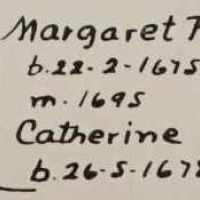 Margaret
b. 22-2-1675
m. 1695
Catherine
b. 26-5-167